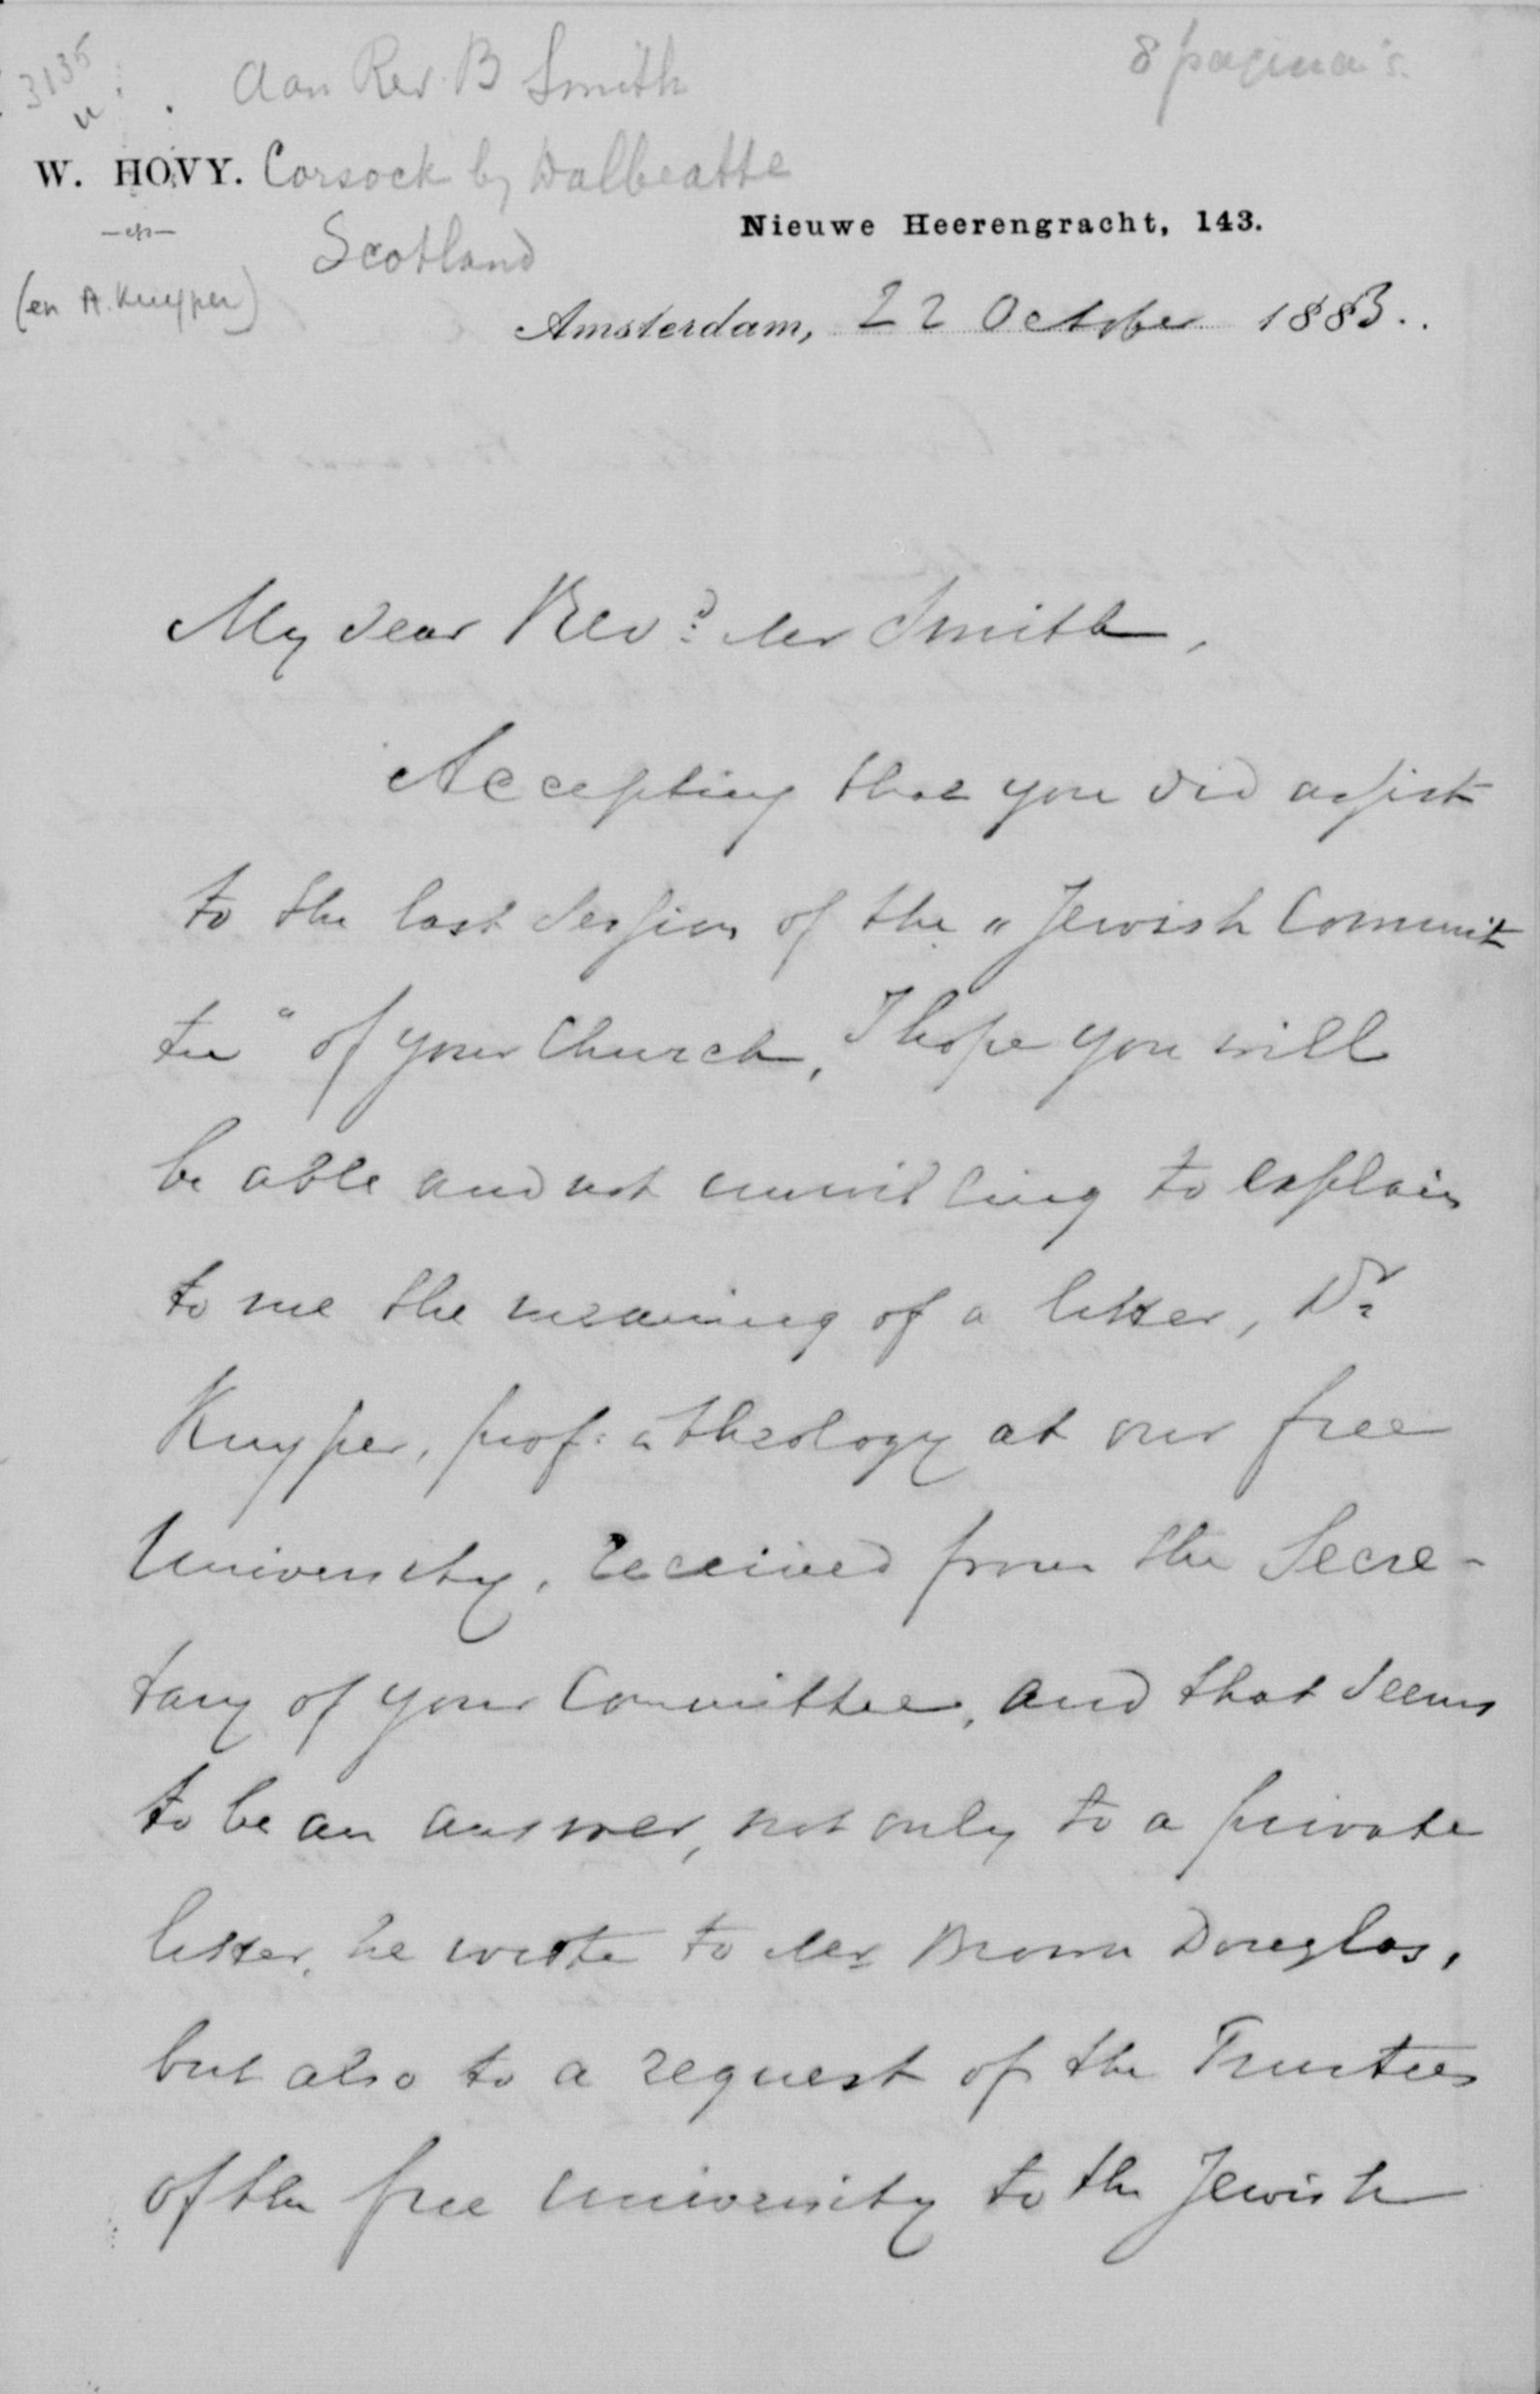 3135
Aan Rev. B Smith
8 pagina's.
W. HOVY.
Corsock by Dalbeatte
Scotland
(en A. Kuyper)
Nieuwe Heerengracht, 143.
Amsterdam, 22 October 1883.
My dear Revd: Mr Smith,
Accepting that you did assist
to the last session of the "Jewish Commit
tee" of your Church, I hope you will
be able and not unwilling to explain
to me the meaning of a letter, Dr
Kuyper, prof: in theology at our free
University, received from the Secre-
tary of your Committee, and that seems
to be an answer, not only to a private
letter, he wrote to Mr Brown Douglas,
but also to a request of the Trustees
of the free university to the Jewish